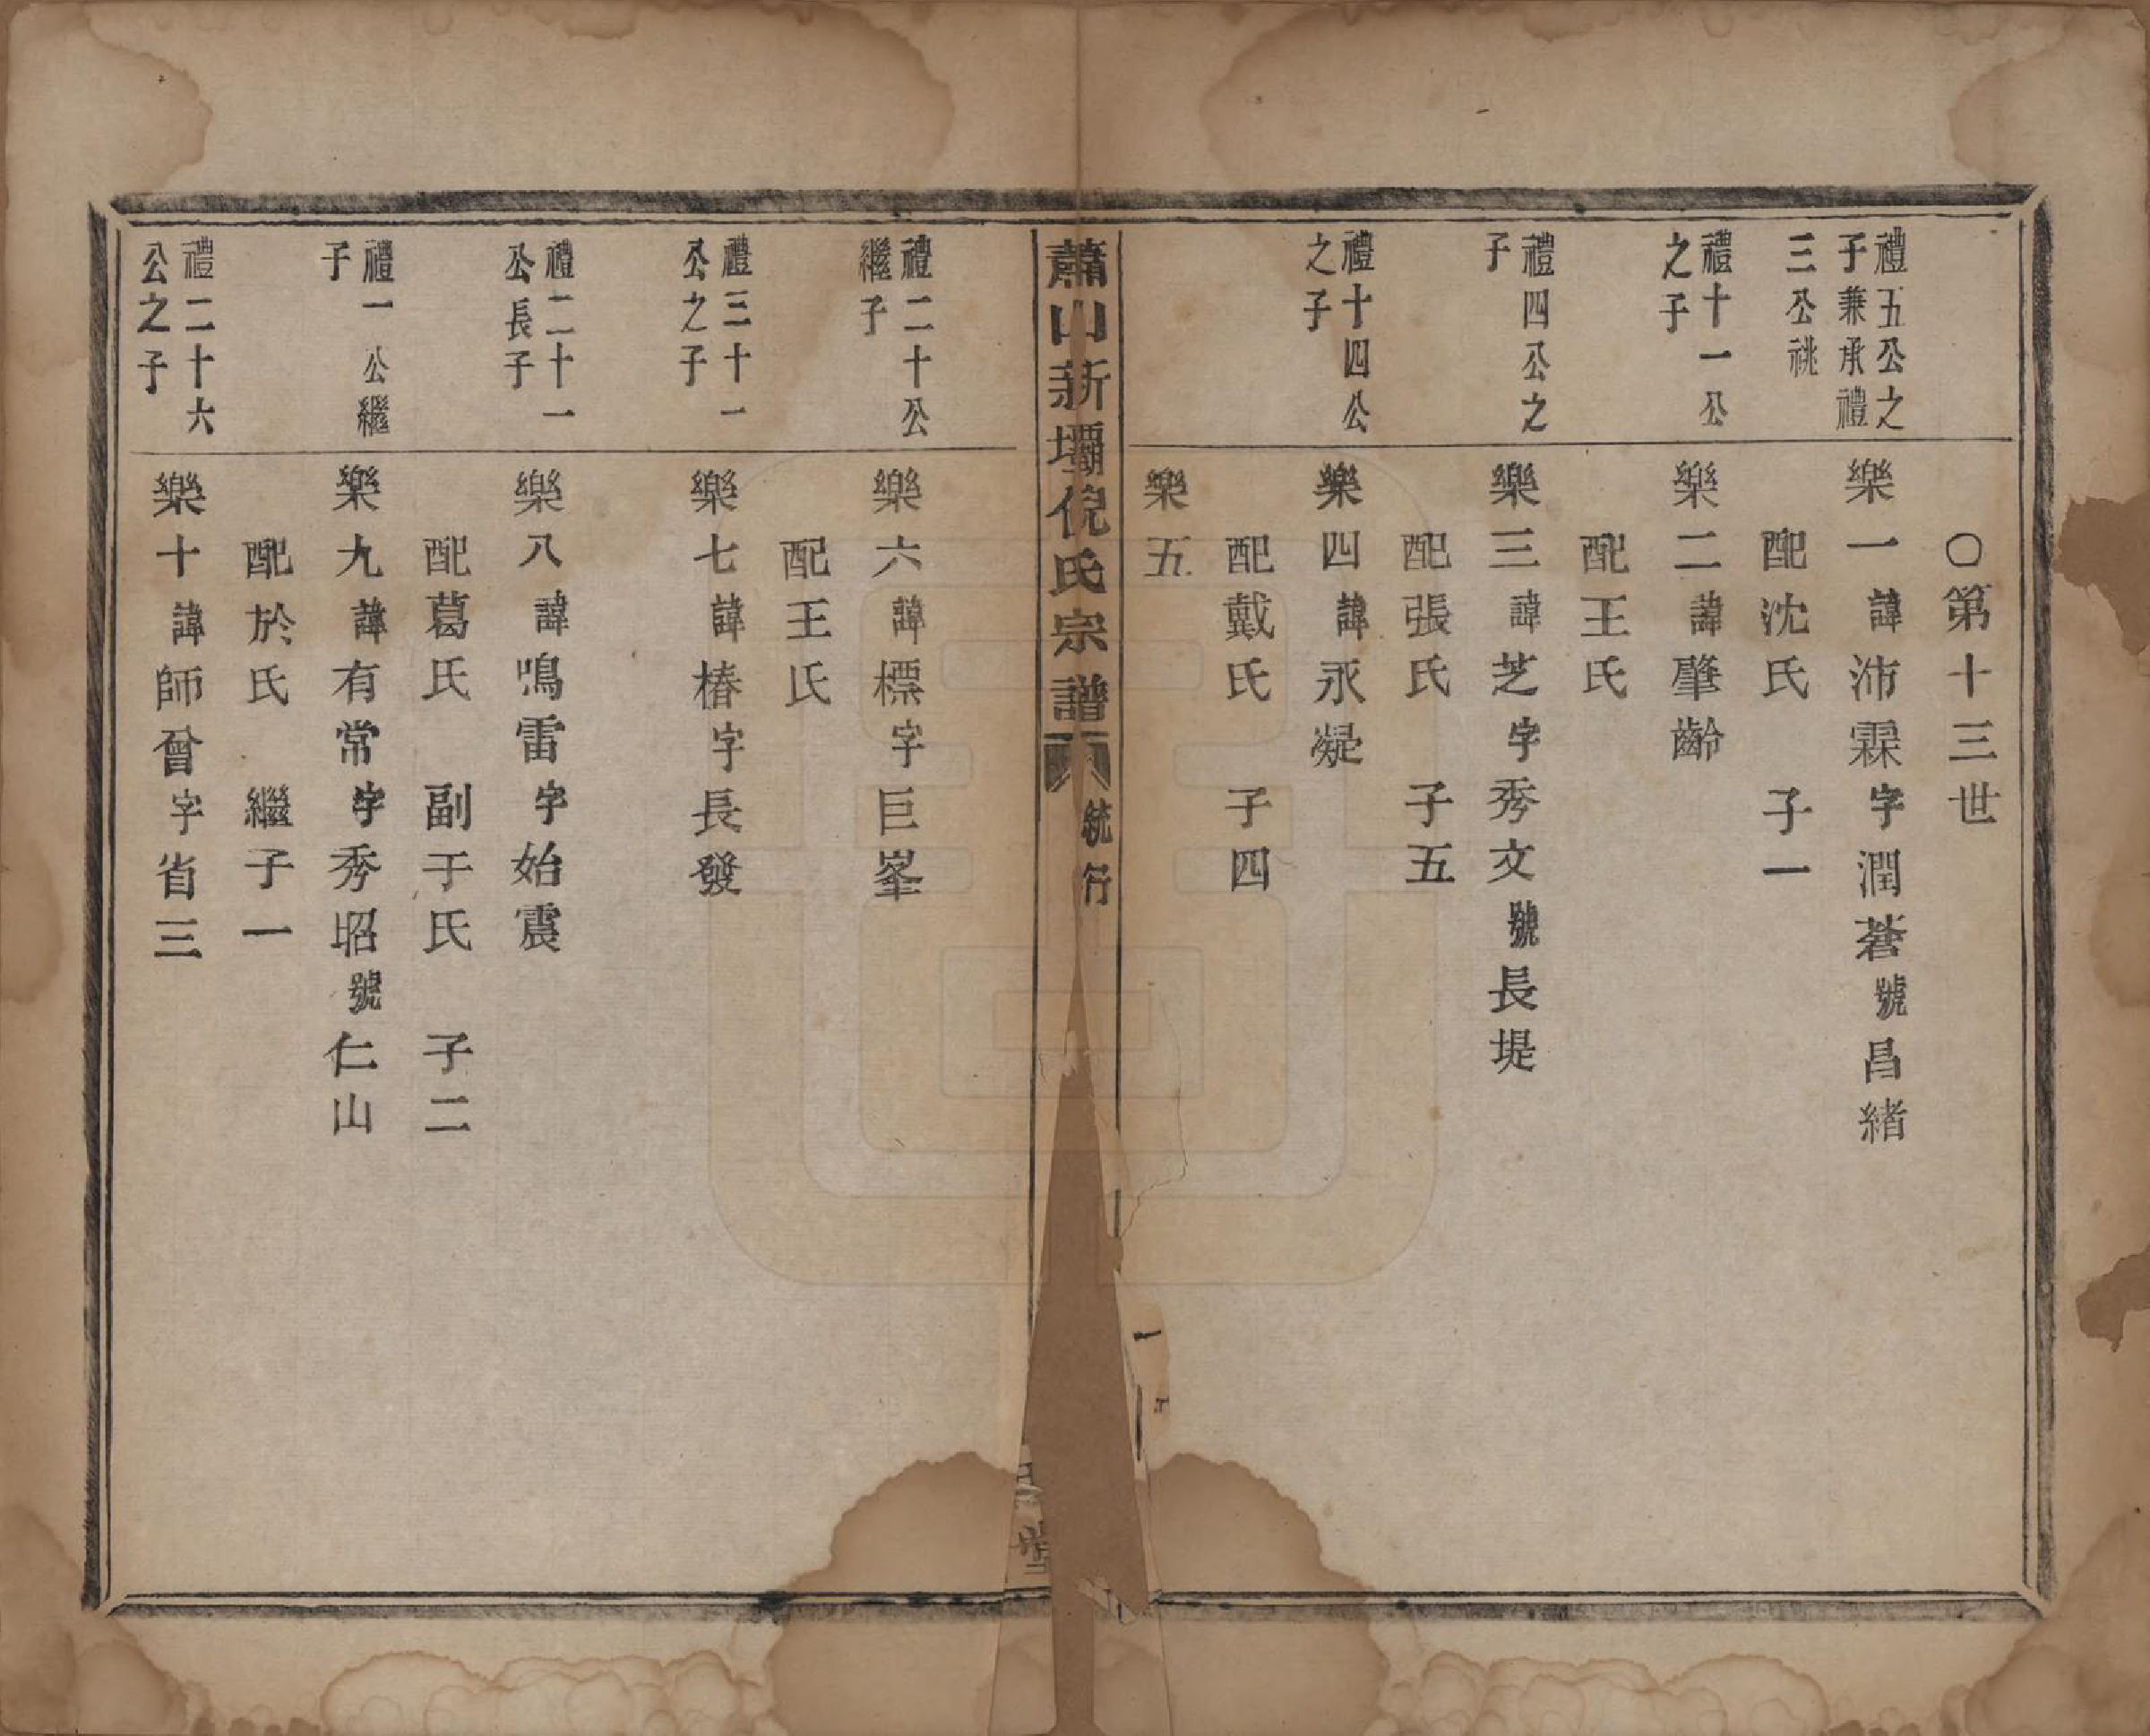 ○第十三世
禮五公之
子兼承禮
三公祧
樂一諱沛霖字潤蒼號昌緒
配沈氏　子一
禮十一公
之子
樂二諱肇齡
配王氏
禮四公之
子
樂三諱芝字秀文號長堤
配張氏　子五
禮十四公
之子
樂四諱永凝
配戴氏　子四
樂五
蕭山新壩倪氏宗譜
統行
一
堂
禮二十公
繼子
樂六諱標字巨峯
配王氏
禮三十一
公之子
樂七諱椿字長發
禮二十一
公長子
樂八諱鳴雷字始震
配葛氏　副于氏　子二
禮一公繼
子
樂九諱有常字秀昭號仁山
配於氏　繼子一
禮二十六
公之子
樂十諱師曾字省三